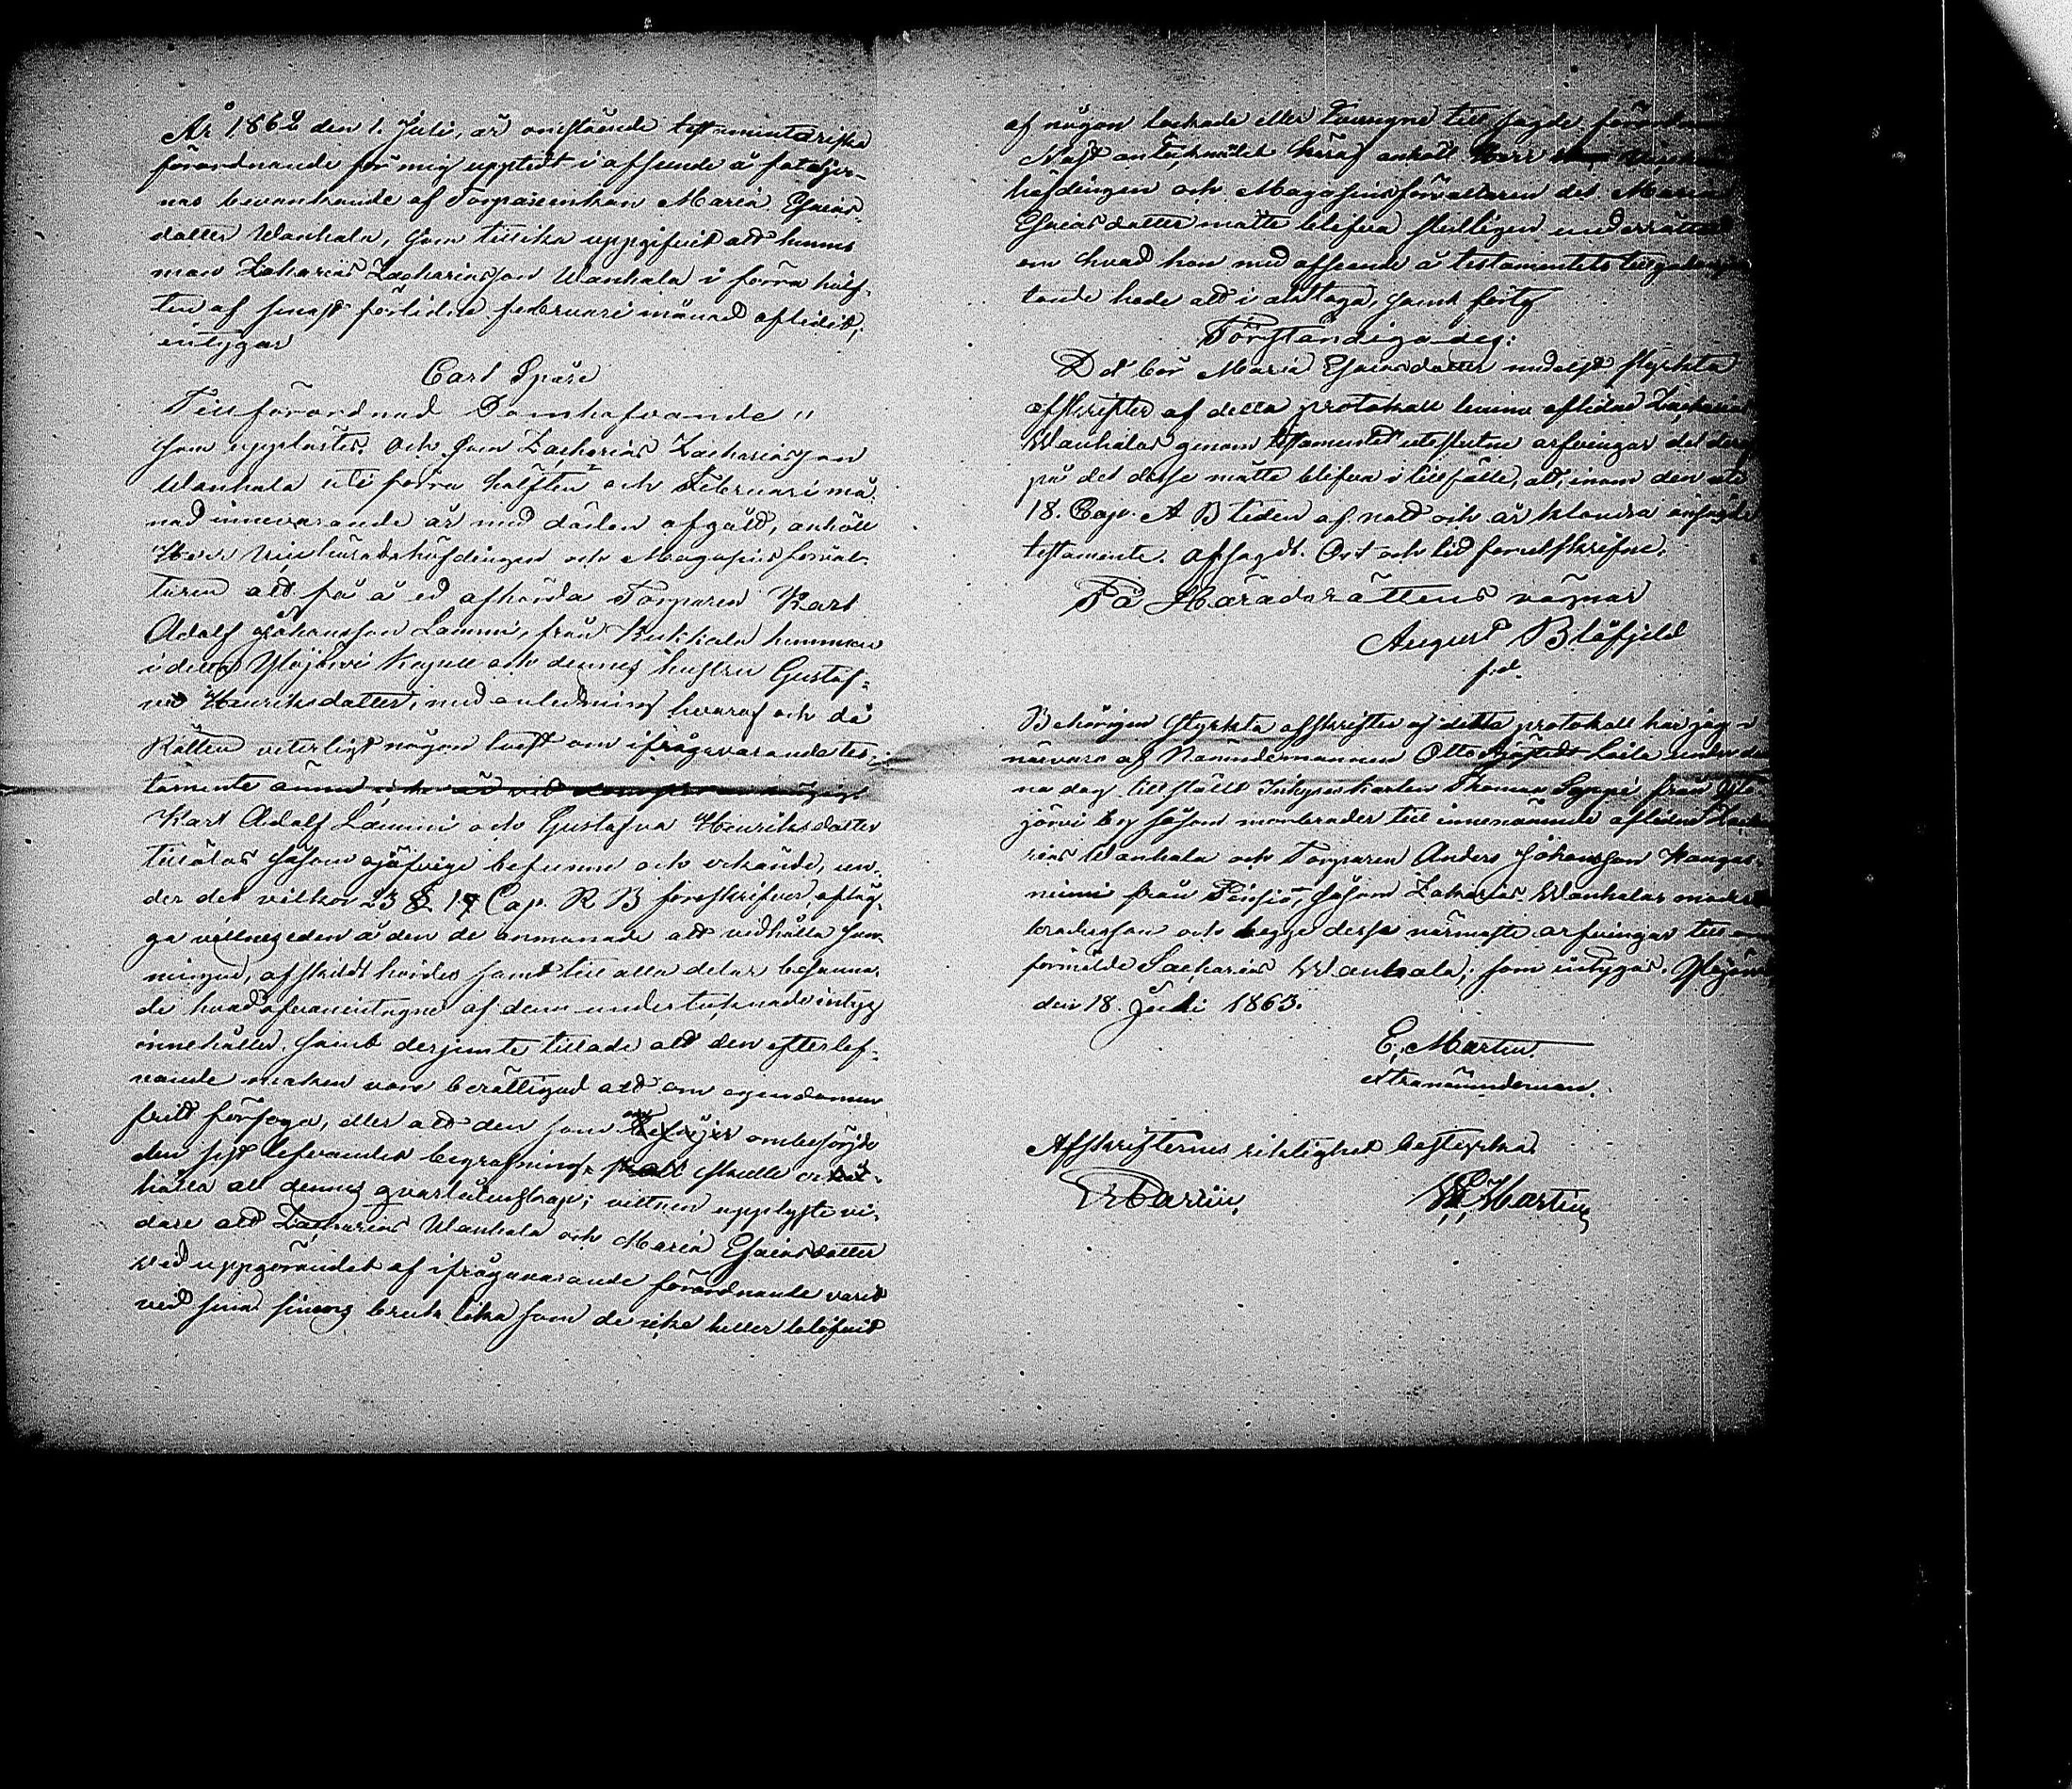 År 1862 den 1. Juli, är omestående testamentariska
förordnande för mig upptedt i afseende å fatalier-
nas bevarande af Torpareenkan Maria Esaias-
dotter Wanhala, som tillika uppgifvit att hennes
man Zakarias Zachariasson Wanhala i förra hälf-
ten af sinast förlidne februari månad aflidit,
intygar
Carl Spåre
Tillförordnad Domhafvande"
som upplästes. Och som Zacharias Zachariasson
Wanhala uti förra hälften och Februari må-
nad innevarande år med döden afgått, anhöll
Herr Vicehäradshöfdingen och Magasinsförval-
taren att få å ed afhörda Torparen Karl
Adolf Johansson Lammi, från hemman
i detta Ylöjärvi Kapell och dennes hustru Gustaf-
va Henriksdotter, med anledning hvaraf och då
Rätten veterligt någon tvist om ifrågavarande tes-
tamente ännu icke
Karl Adolf Lammi och Gustafva Henriksdotter
tillåtas såsom ojäfvige befunne och erkände, un-
der det vilkor 23 § 17 Cap. R B föreskrifver, afläg-
ga vittneseden å den de anmanade att vidhålla san-
ningen, afskildt hördes samt till alla delar besanna-
de hvad ofvanintagne af dem undertecknade intyg
innehåller, samt derjemte tillade att den efterlef-
vande maken vore berättigad att om egendomen
fritt förfoga, eller att den som ombesörjde
den sist lefvandes begrafning, skulle er-
hålla all dennes qvarlåtenskap; vittnen upplyste vi-
dare att Zacharias Wanhala och Maria Esaiasdotter
ved uppgörandet af ifrågavarande förordnande varit
ved sina sinnens bruk lika som de icke heller blifvit
af någon lockade eller tvungne till sagde
Näst antecknandet häraf anhöll Herr
höfdingen och Magasinsförvaltaren det Maria
Esaiasdotter måtte blifva skriftligen underrättad
om hvad hon med afseende å testamentets
tande hade att i akttaga, samt förty
Förständigades:
Det bör Maria Esaiasdotter medelst styrkta
afskrifter af detta protokoll lemna aflidne Zacharias
Wanhalas genom testamentet uteslutne arfvingar del deraf
på det desse måtte blifva i tillfälle, att, inom den uti
18. Cap. Ä B tiden af natt och år klandra ofsagde
testamente. Afsagdt. Ort och tid förutskrifne.
På Häradsrättens vägnar
August Blåfjeld
f.d.
Behörigen styrkta afskrifter af detta protokoll har jag i
närvaro af Nämndemannen Otto Laila under den-
na dag tillställt Thomas Seppä från Ylö-
järvi by såsom morbroder till innenämnde aflidne Zacha-
rias Wanhala och Torparen Anders Johansson Kangas-
niemi från Pinsiö, såsom Zakarias Wanhalas moder-
brodersson och begge desse närmaste arfvingar till
förmälde Sacharias Wanhala; som intygas. Ylöjärvi
den 18. Juli 1863.
E. Martin.
extranämndeman.
Afskrifternes riktighet bestyrka.
Martin.